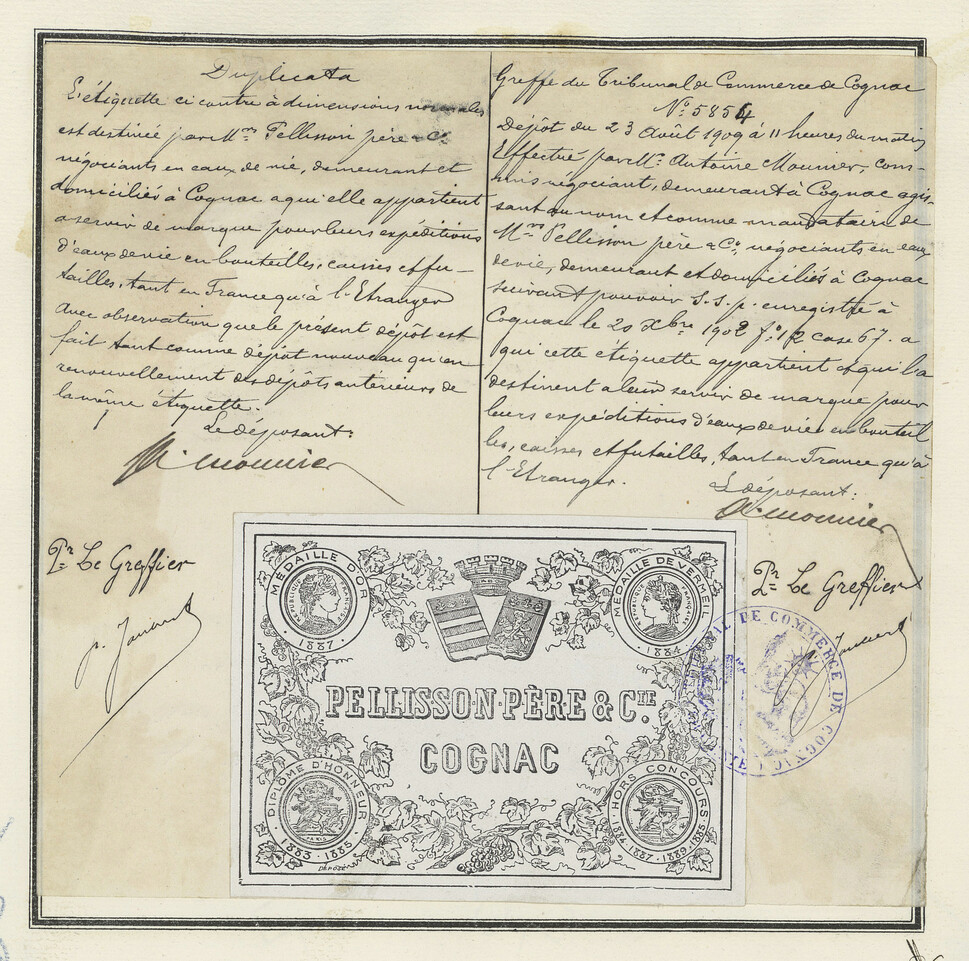 Duplicata
L'étiquette ci contre à dimensions normales
est destinée par Mrs Pellisson père & Co
négociants en eaux de vie, demeurant et
domiciliés à Cognac a qui elle appartient
a servir de marque pour leurs expéditions
d'eaux de vie en bouteilles, caisses et fu-
tailles, tant en France qu'à l'Etranger
Avec observation que le présent dépôt est
fait tant comme dépôt nouveau qu'en
renouvellement des dépôts antérieurs de
la même étiquette.
Le déposant:
A. Mounier
Pr Le Greffier
Greffe du Tribunal de Commerce de Cognac
No 5854
Dépôt du 23 Août 1909 à 11 heures du matin
Effectué par Mr. Antoine Mounier, com-
mis négociant, demeurant à Cognac agis-
sant au nom et comme mandataire de
Mrs Pellisson père & Co, négociants en eaux
de vie, demeurant et domiciliés à Cognac
suivant pouvoir S.S.p. enregistré à
Cognac le 20 Xbre 1902 fo 12 case 67. a
qui cette étiquette appartient et qui l'a
destinent a leur servir de marque pour
leurs expéditions d'eaux de vie en bouteil
les, caisses et futailles, tant en France qu'à
l'Etranger.
Le déposant:
A. Mounier
Pr Le Greffier
MÉDAILLE D'OR
RÉPUBLIQUE FRANÇAISE
1887
MÉDAILLE DE VERMEIL
RÉPUBLIQUE FRANÇAISE
1884
PELLISSON·PÈRE & CIE.
COGNAC
DIPLÔME D'HONNEUR
PARIS
1883·1885
HORS CONCOURS
1884·1887·1889·1897
DÉPOSÉ
TRIBUNAL DE COMMERCE DE COGNAC